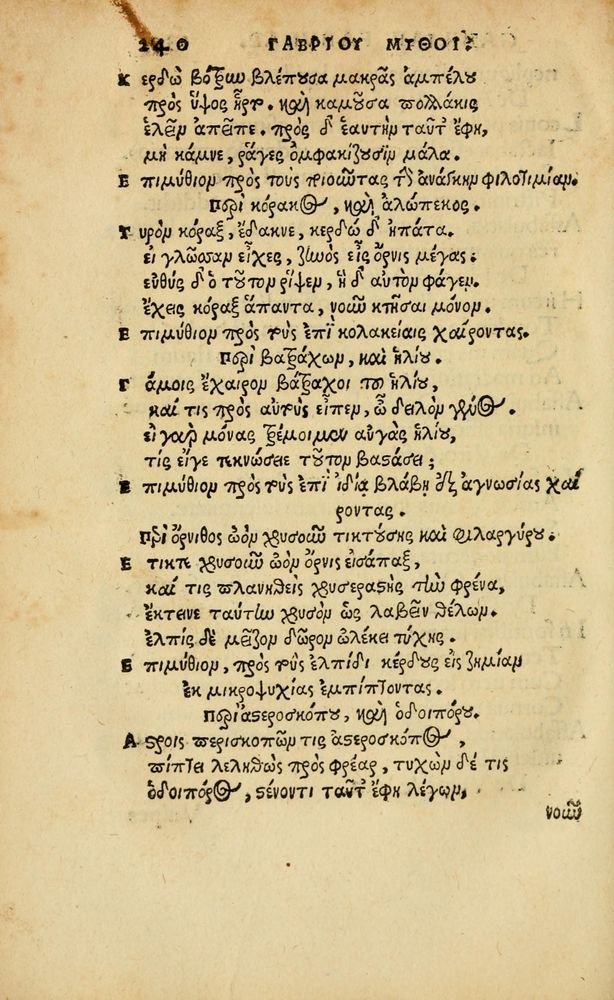 240 ΓΑΒΡΙΟΥ ΜΥΘΟΙ.
Κερδὼ βότρυν βλέπουσα μακρᾶς ἀμπέλου
πρὸς ὕψος ἦρτ. καὶ καμοῦσα πολλάκις
ἑλεῖν ἀπεῖπε. πρὸς δ' ἑαυτὴν ταῦτ' ἔφη,
μὴ κάμνε, ῥάγες ὀμφακίζουσιν μάλα.
Ἐπιμύθιον πρὸς τοὺς ποιοῦντας τὴν ἀνάγκην φιλοτιμίαν.
Περὶ κόρακος, καὶ ἀλώπεκος.
Τυρὸν κόραξ, ἔδακνε, κερδὼ δ' ἠπάτα.
εἰ γλῶσσαν εἶχες, ζηνὸς εἶς ὄρνις μέγας.
εὐθὺς δ' ὁ τοῦτον ῥίψεν, ἡ δ' αὐτὸν φάγεν.
ἔχεις κόραξ ἅπαντα, νοῦν κτῆσαι μόνον.
Ἐπιμύθιον πρὸς τοὺς ἐπὶ κολακείαις χαίροντας.
Περὶ βατράχων, καὶ ἡλίου.
Γάμοις ἔχαιρον βάτραχοι τῷ ἡλίου,
καί τις πρὸς αὐτοὺς εἶπεν, ὦ δειλὸν γένος.
εἰ γὰρ μόνας τρέμοιμεν αὐγὰς ἡλίου,
τίς εἴγε τεκνώσειε τοῦτον βαστάσει;
Ἐπιμύθιον πρὸς τοὺς ἐπὶ ἰδίᾳ βλάβῃ ἐξ ἀγνωσίας χαί
ροντας.
Περὶ ὄρνιθος ὠὸν χρυσοῦν τικτούσης καὶ φιλαργύρου.
Ἔτικτε χρυσοῦν ὠὸν ὄρνις εἰσάπαξ,
καί τις πλανηθεὶς χρυσεραστὴς τὴν φρένα,
ἔκτεινε ταύτην χρυσὸν ὡς λαβεῖν θέλων.
ἐλπὶς δὲ μεῖζον δῶρον ὠλέκει τύχης.
Ἐπιμύθιον, πρὸς τοὺς ἐλπίδι κέρδους εἰς ζημίαν
ἐκ μικροψυχίας ἐμπίπτοντας.
Περὶ ἀστεροσκόπου, καὶ ὁδοιπόρου.
Ἄστροις περισκοπῶν τις ἀστεροσκόπος,
πίπτει λεληθὼς πρὸς φρέαρ, τυχὼν δέ τις
ὁδοιπόρος, στένοντι ταῦτ' ἔφη λέγων,
νοῦν